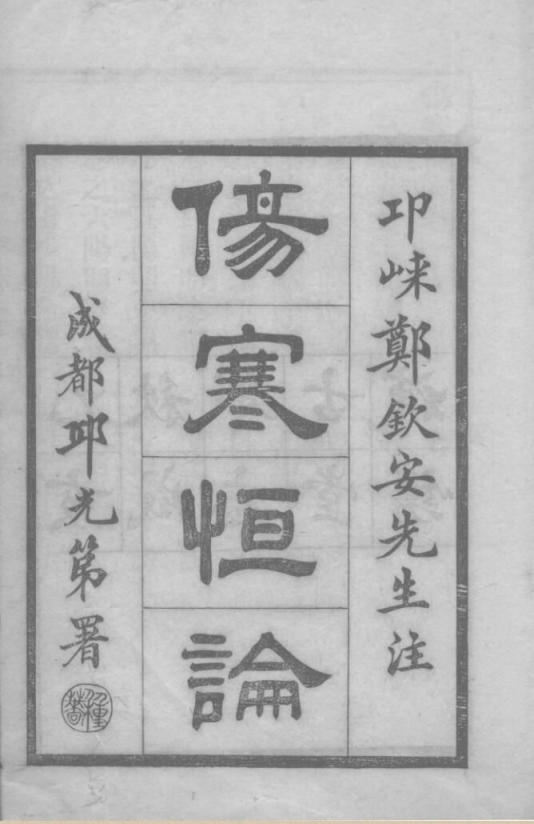 邛崍鄭欽安先生注
傷寒恒論
成都邱光第署